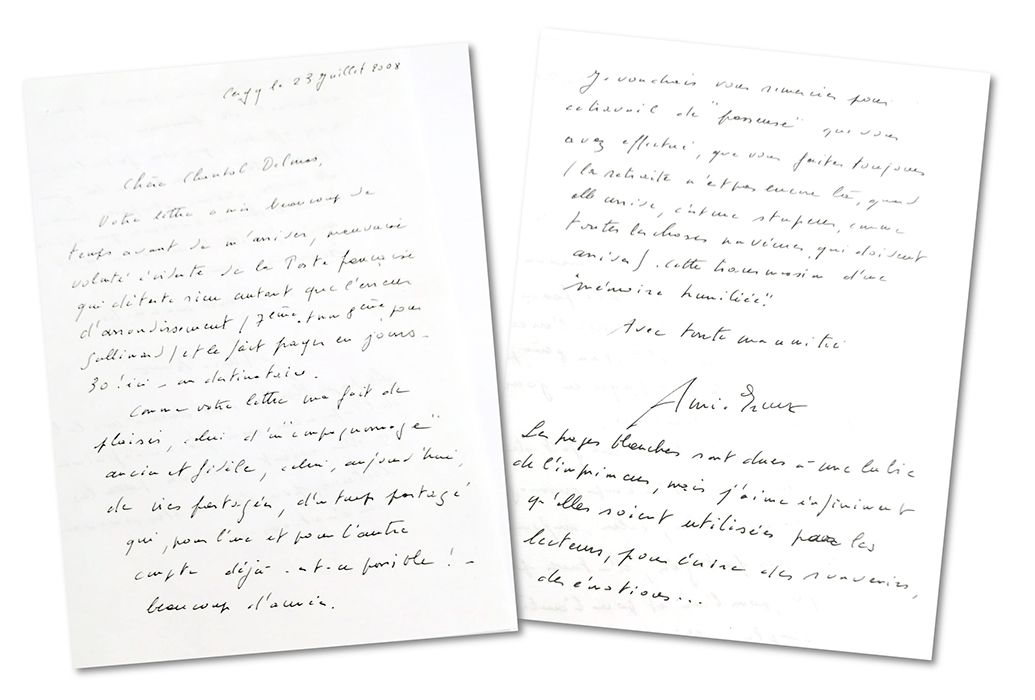 Cergy le 23 Juillet 2008
Chère Chantal Delmas,
Votre lettre a mis beaucoup de
temps avant de m'arriver, mauvaise
volonté évidente de la Poste française
qui déteste rien autant que l'erreur
d'arrondissement (7ème au 5ème pour
Gallimard) et le fait payer en jours -
30 ! ici - au destinataire.
Comme votre lettre m'a fait de
plaisir, celui d'un "compagnonnage"
ancien et fidèle, celui, aujourd'hui,
de vies partagées, d'un temps partagé
qui, pour l'une et pour l'autre
compte déjà - est-ce possible ! -
beaucoup d'années.
Je voudrais vous remercier pour
ce travail de "passeuse" que vous
avez effectué, que vous faites toujours
(la retraite n'est pas encore là, quand
elle arrive, c'est une stupeur, comme
toutes les choses qui doivent
arriver). Cette transmission d'une
"mémoire humiliée".
Avec toute mon amitié
Annie Ernaux
Les pages blanches sont dues à une lubie
de l'imprimeur, mais j'aime infiniment
qu'elles soient utilisées par les
lecteurs, pour écrire des souvenirs,
des émotions...